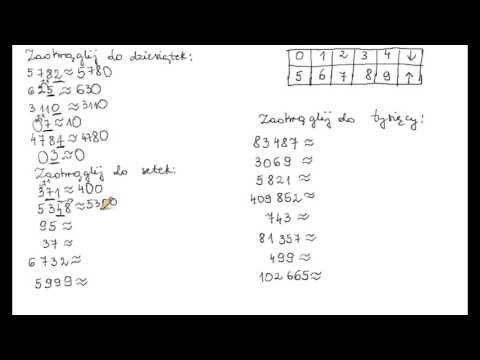 Zaokrąglij do dziesiątek:
5782≈5780
625≈630
3110≈3110
07≈10
4784≈4780
03≈0
Zaokrąglij do setek:
371≈400
5348≈5300
95≈
37≈
6732≈
5999≈
0 1 2 3 4 ↓
5 6 7 8 9 ↑
Zaokrąglij do tysięcy:
83487≈
3069≈
5821≈
409852≈
743≈
81357≈
499≈
102665≈